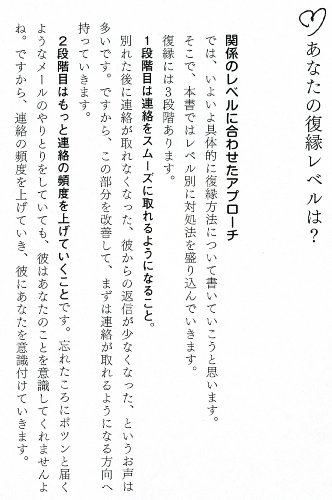 あなたの復縁レベルは？
関係のレベルに合わせたアプローチ
では、いよいよ具体的に復縁方法について書いていこうと思います。
そこで、本書ではレベル別に対処法を盛り込んでいきます。
復縁には３段階あります。
１段階目は連絡をスムーズに取れるようになること。
別れた後に連絡が取れなくなった、彼からの返信が少なくなった、というお声は
多いです。ですから、この部分を改善して、まずは連絡が取れるようになる方向へ
持っていきます。
２段階目はもっと連絡の頻度を上げていくことです。忘れたころにポツンと届く
ようなメールのやりとりをしていても、彼はあなたのことを意識してくれませんよ
ね。ですから、連絡の頻度を上げていき、彼にあなたを意識付けていきます。